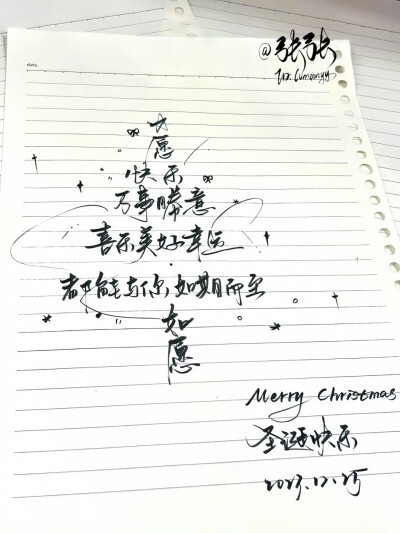 @张张
大
愿
快乐
万事勝意
喜乐美好幸运
都能与你如期而至
如
愿
Merry Christmas
圣诞快乐
2023.12.25